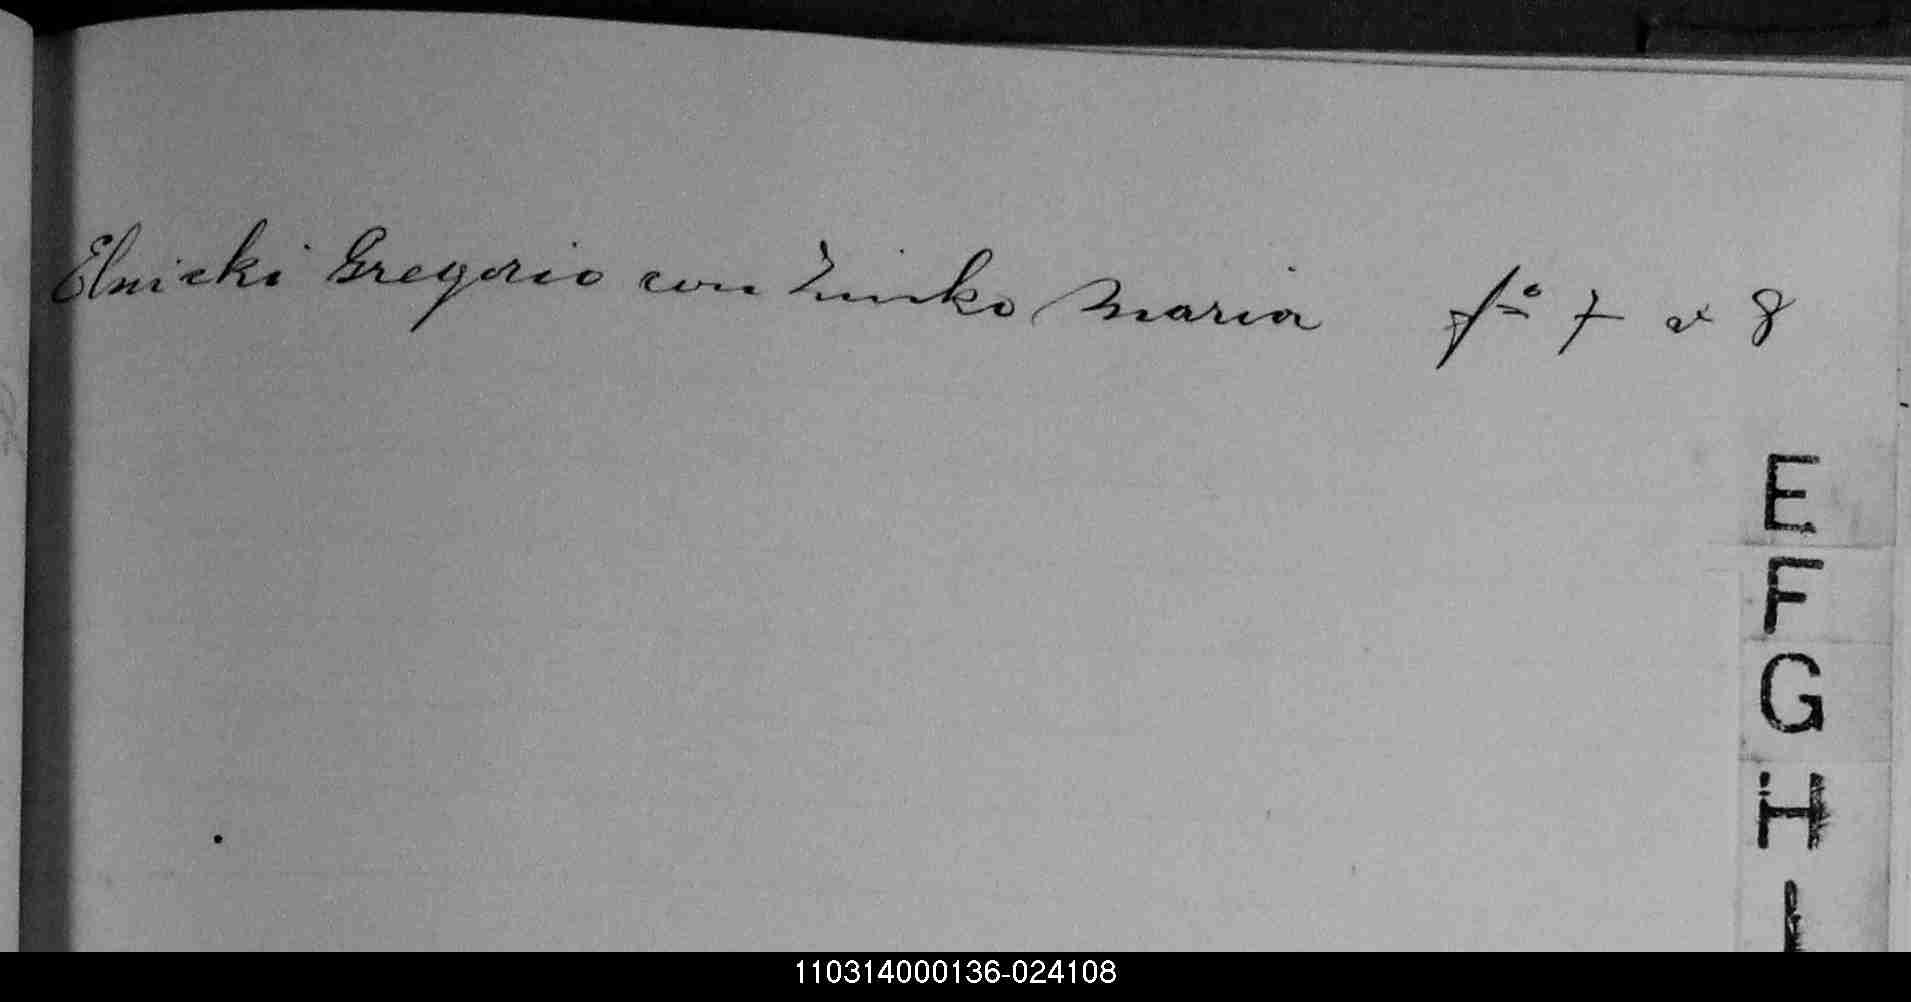 Elnicki Gregorio con Zinko Maria fº 7 v 8
E
F
G
H
I
110314000136-024108